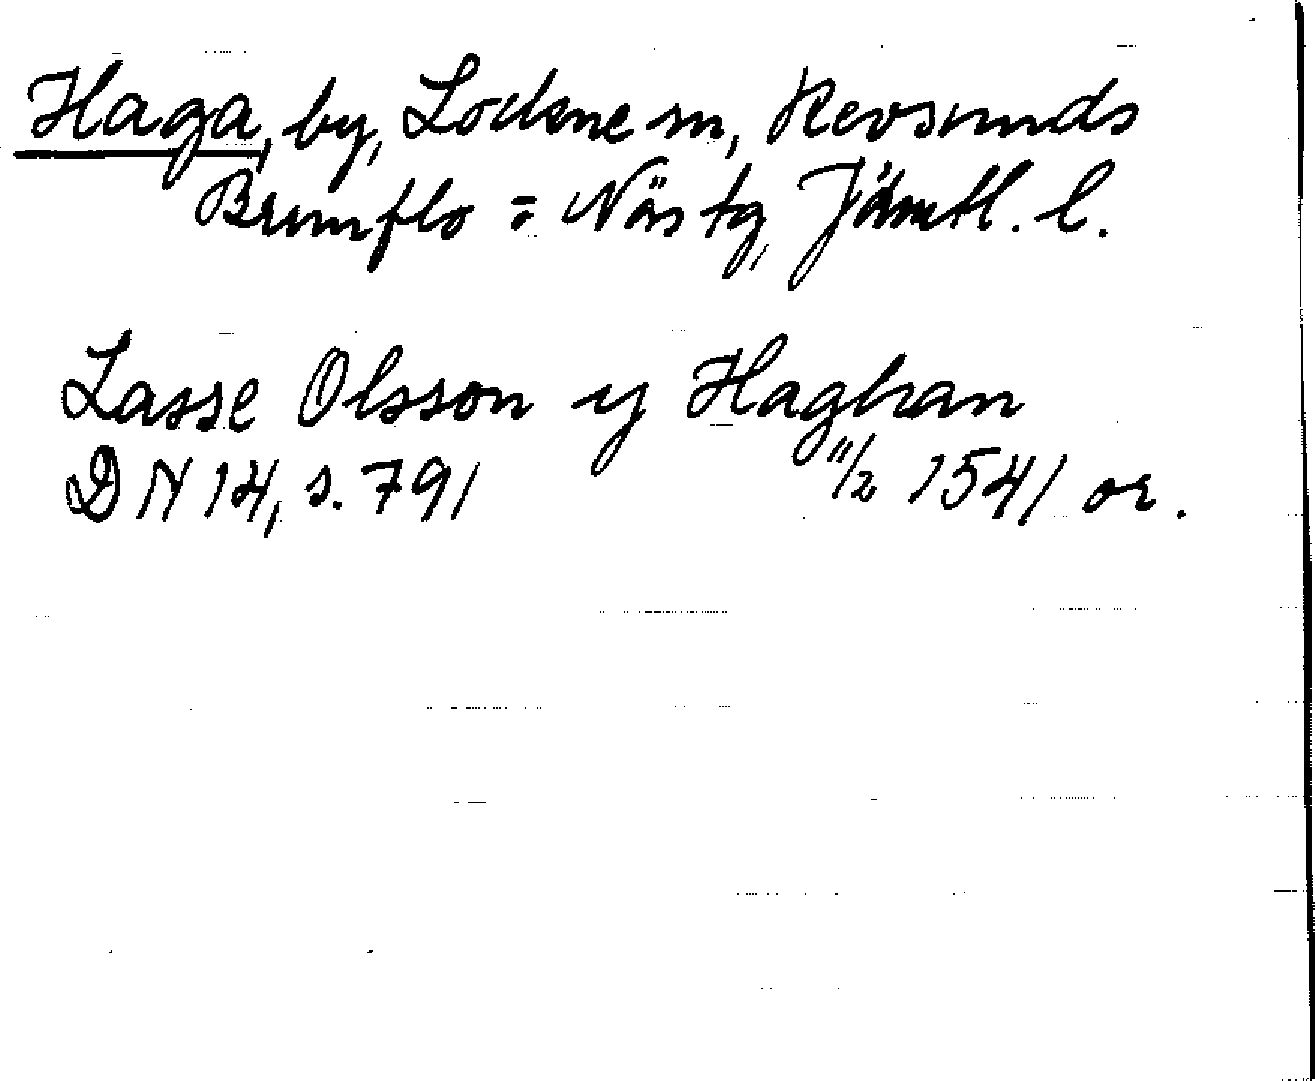 Haga, by, Lockne sn, Revsunds
Brunflo = Näs tg, Jämtl. l.
Lasse Olsson y Haghan
DN 14, s. 791 11/2 1541 or.